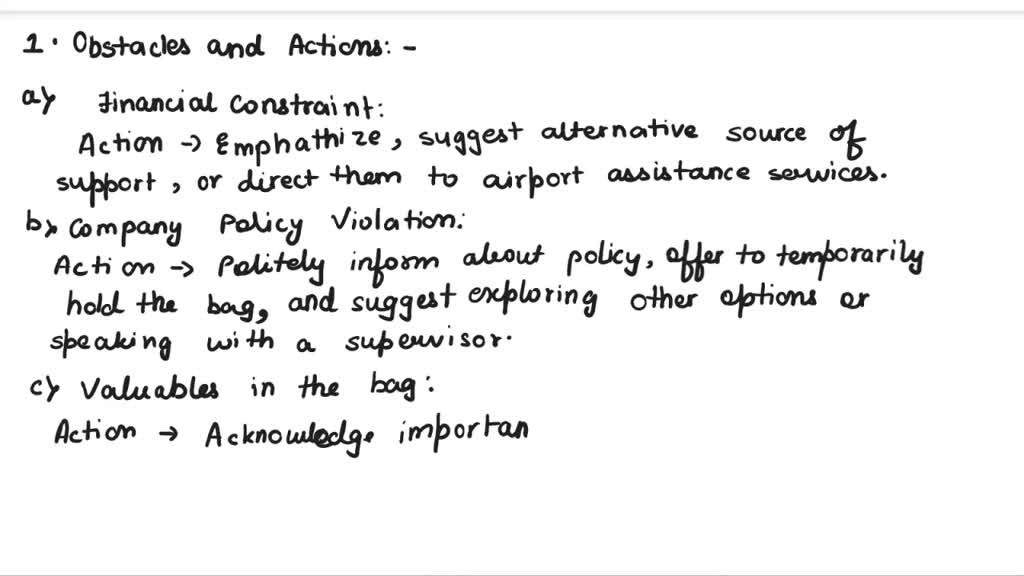 1. Obstacles and Actions: -
a) Financial Constraint:
Action → Emphathize, suggest alternative source of
support, or direct them to airport assistance services.
b) Company Policy Violation:
Action → Politely inform about policy, offer to temporarily
hold the bag, and suggest exploring other options or
speaking with a supervisor.
c) Valuables in the bag:
Action → Acknowledge importan